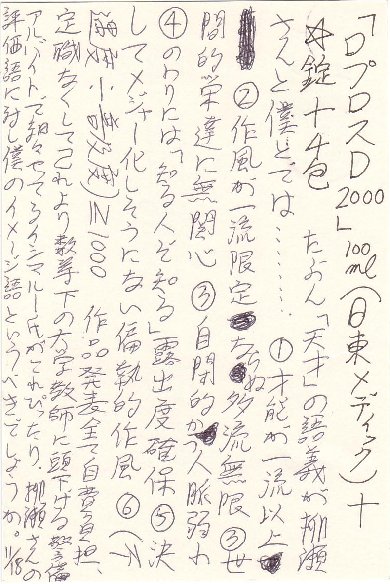 「ロプロスD 2000」100ml(日東メディック)+
☆錠+4包 たぶん「天才」の語義が柳瀬
さんと僕とでは……… ①才能が一流以上
②作風が一流限定ならぬ多流無限 ③世
間的栄達に無関心 ③自閉的かつ人脈弱わ
④のわりには「知る人ぞ知る」露出度確保 ⑤決
してメジャー化しそうにない偏執的作風 ⑥(
度)≧1000 作品発表全て自費負担、
定職なくしてこれより数等下の大学教師に頭下げる警備
アルバイトで細々やってる氏がこれぴったり、柳瀬さんの
評価語に対し僕のイメージ語というべきでしょうか。11/18